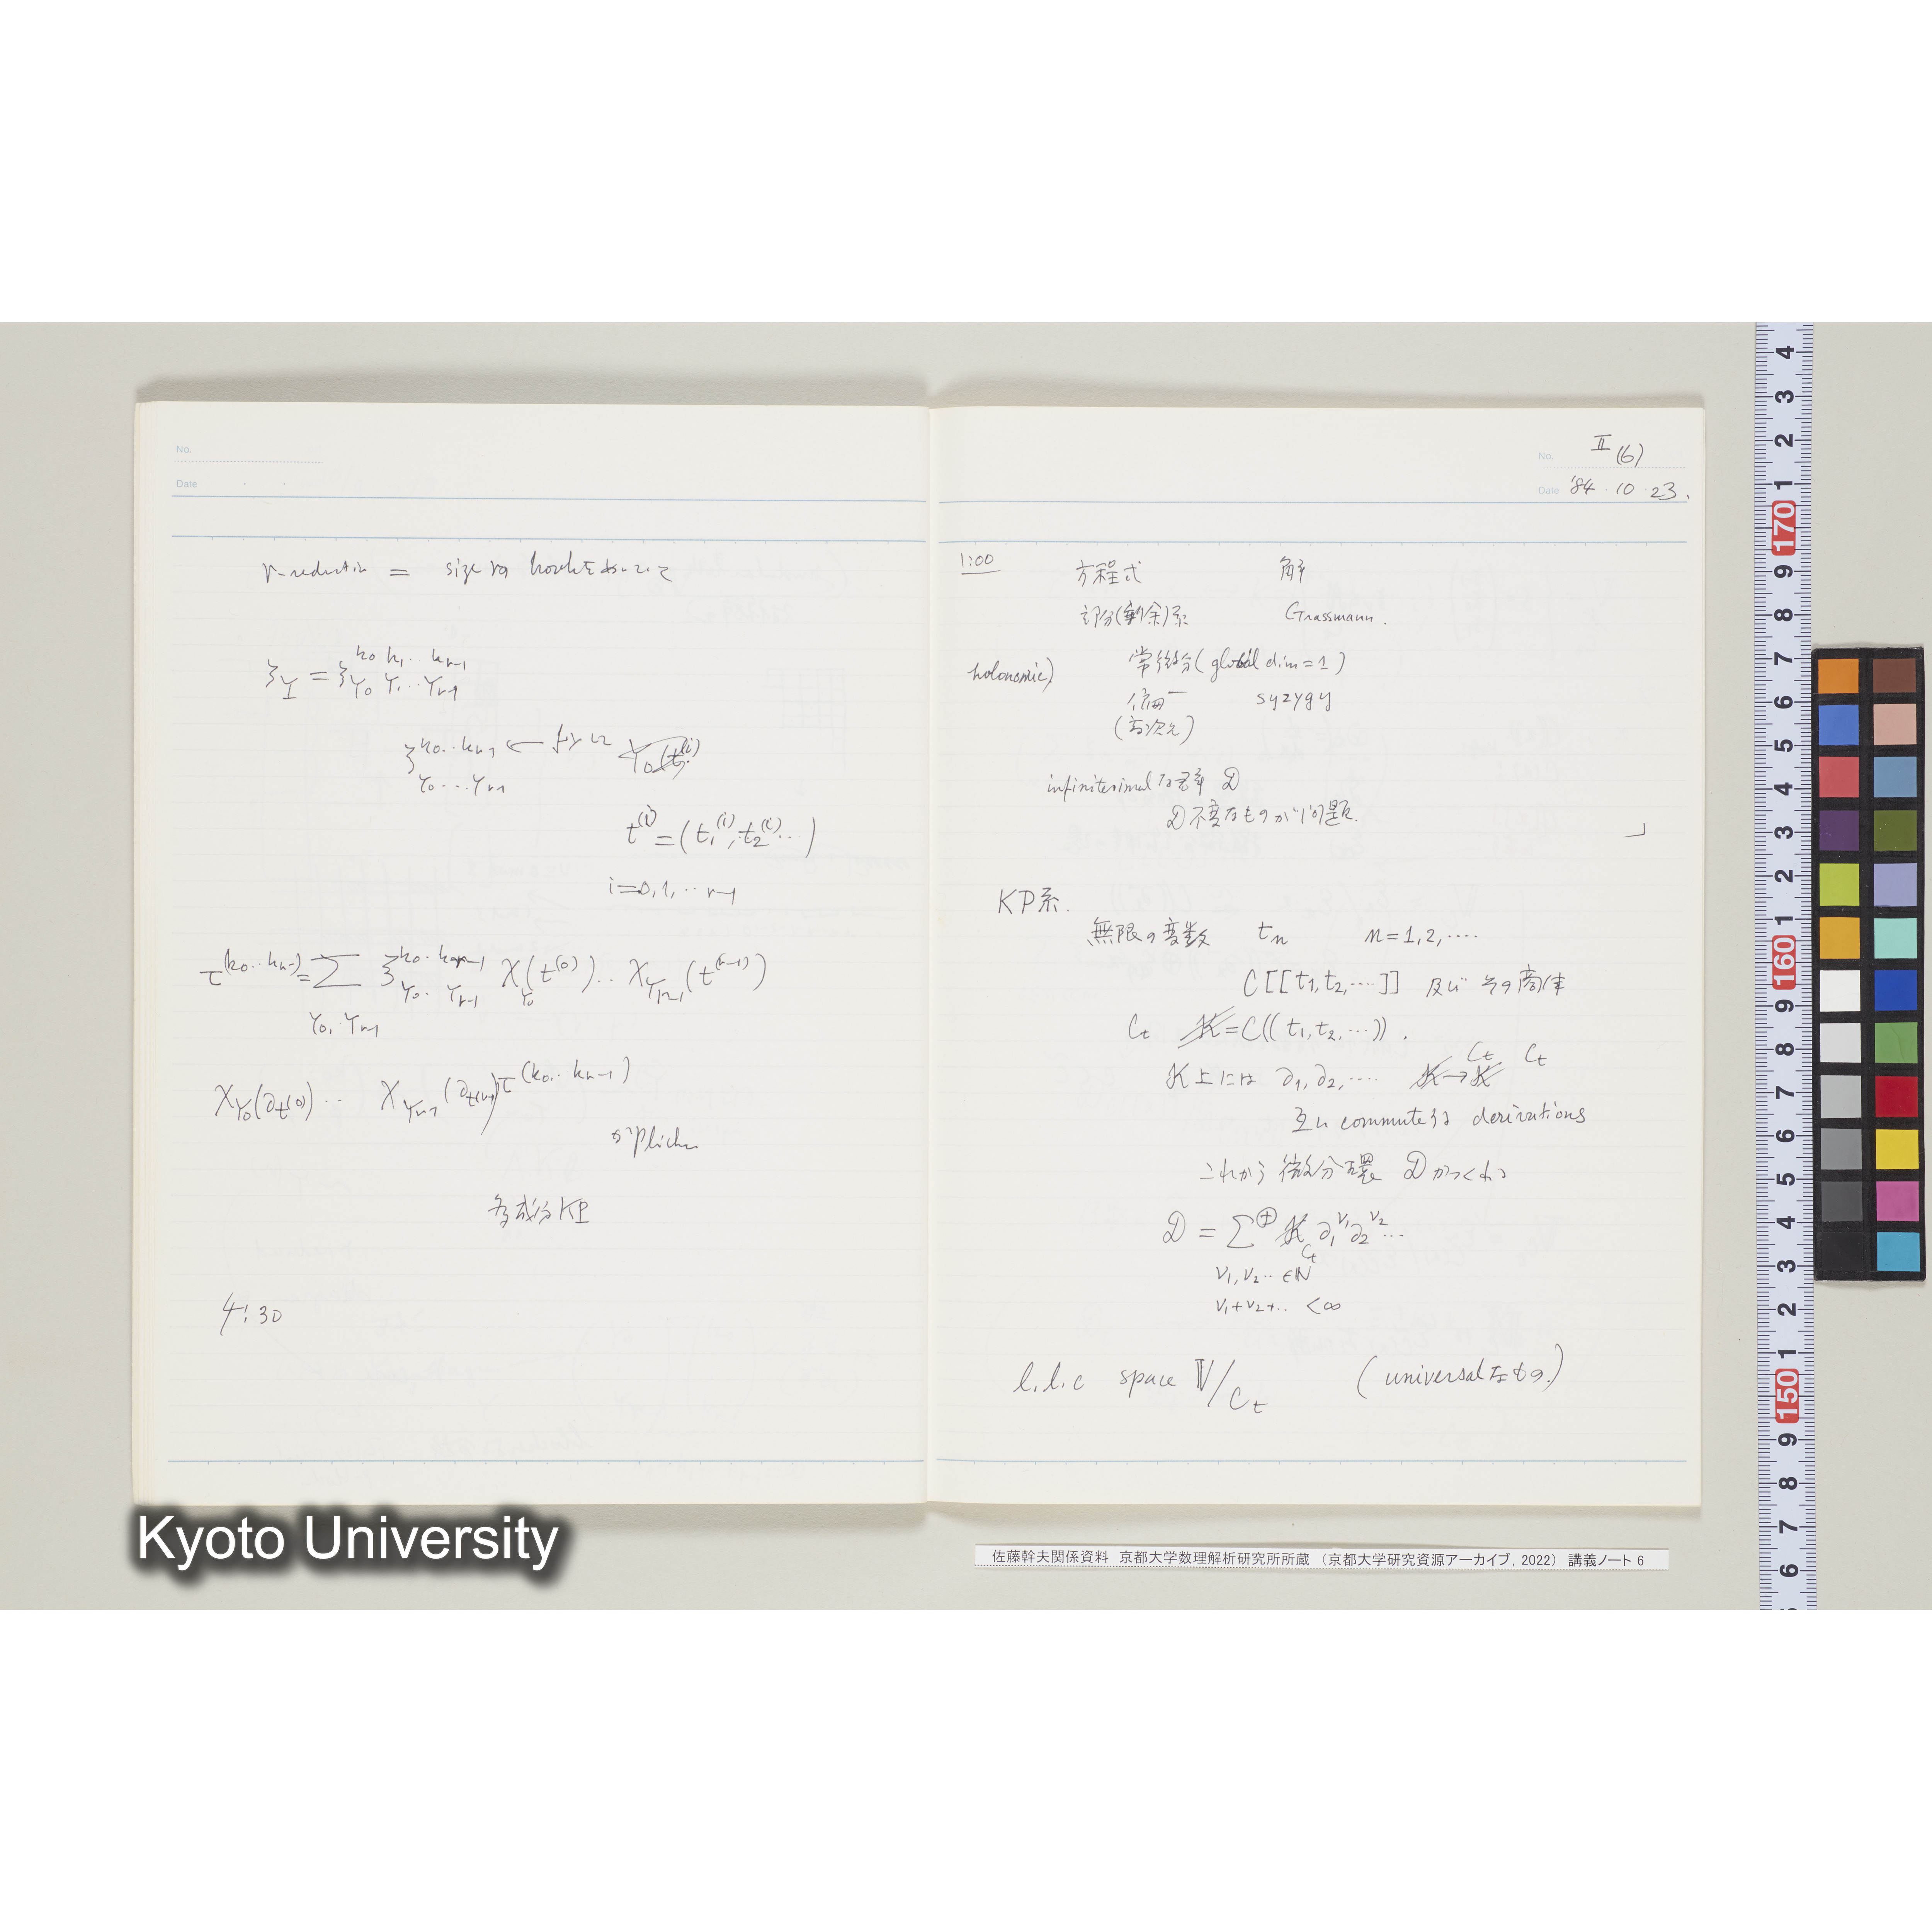 No.
Date
r-reduction = size rの hookを
ξ_Y = ξ^{k0 k1 ‥ kr-1}_{Y0 Y1 ‥ Yr-1}
ξ^{k0‥kr-1}_{Y0…Yr-1} ← fix
t^{(i)} = (t_1^{(i)}, t_2^{(i)} …)
i=0,1,‥ r-1
τ^{(k0‥kr-1)} = Σ_{Y0, Yr-1} ξ^{k0‥kr-1}_{Y0‥Yr-1} χ_{Y0}(t^{(0)}) ‥ χ_{Yr-1}(t^{(r-1)})
χ_{Y0}(∂_{t^{(0)}}) ‥ χ_{Yr-1}(∂_{t^{(r-1)}}) τ^{(k0‥kr-1)}
が Plücker
多成分KP
4:30
No. II (6)
Date '84・10・23.
1:00
方程式 解
部分(剰余)系 Grassmann.
holonomic) 常微分(global dim=1)
偏〃 syzygy
(高次元)
infinitesimalな 𝒟
𝒟不変なものが問題.
KP系.
無限の変数 t_n n=1,2,‥‥
C[[t_1,t_2,‥‥]] 及び その商体
C_t 𝒦=C((t_1,t_2,‥‥)).
𝒦上には ∂_1,∂_2,‥‥ 𝒦→𝒦 C_t C_t
互に commuteする derivations
これから 微分環 𝒟がつくれる
𝒟 = Σ^⊕ 𝒦 C_t ∂_1^{ν1} ∂_2^{ν2}…
ν_1,ν_2‥ ∈ℕ
ν_1+ν_2+‥ <∞
l.l.c space V/C_t (universalなもの.)
Kyoto University
佐藤幹夫関係資料 京都大学数理解析研究所所蔵 (京都大学研究資源アーカイブ, 2022) 講義ノート 6
4
3
2
1
170
9
8
7
6
5
4
3
2
1
160
9
8
7
6
5
4
3
2
1
150
9
8
7
6